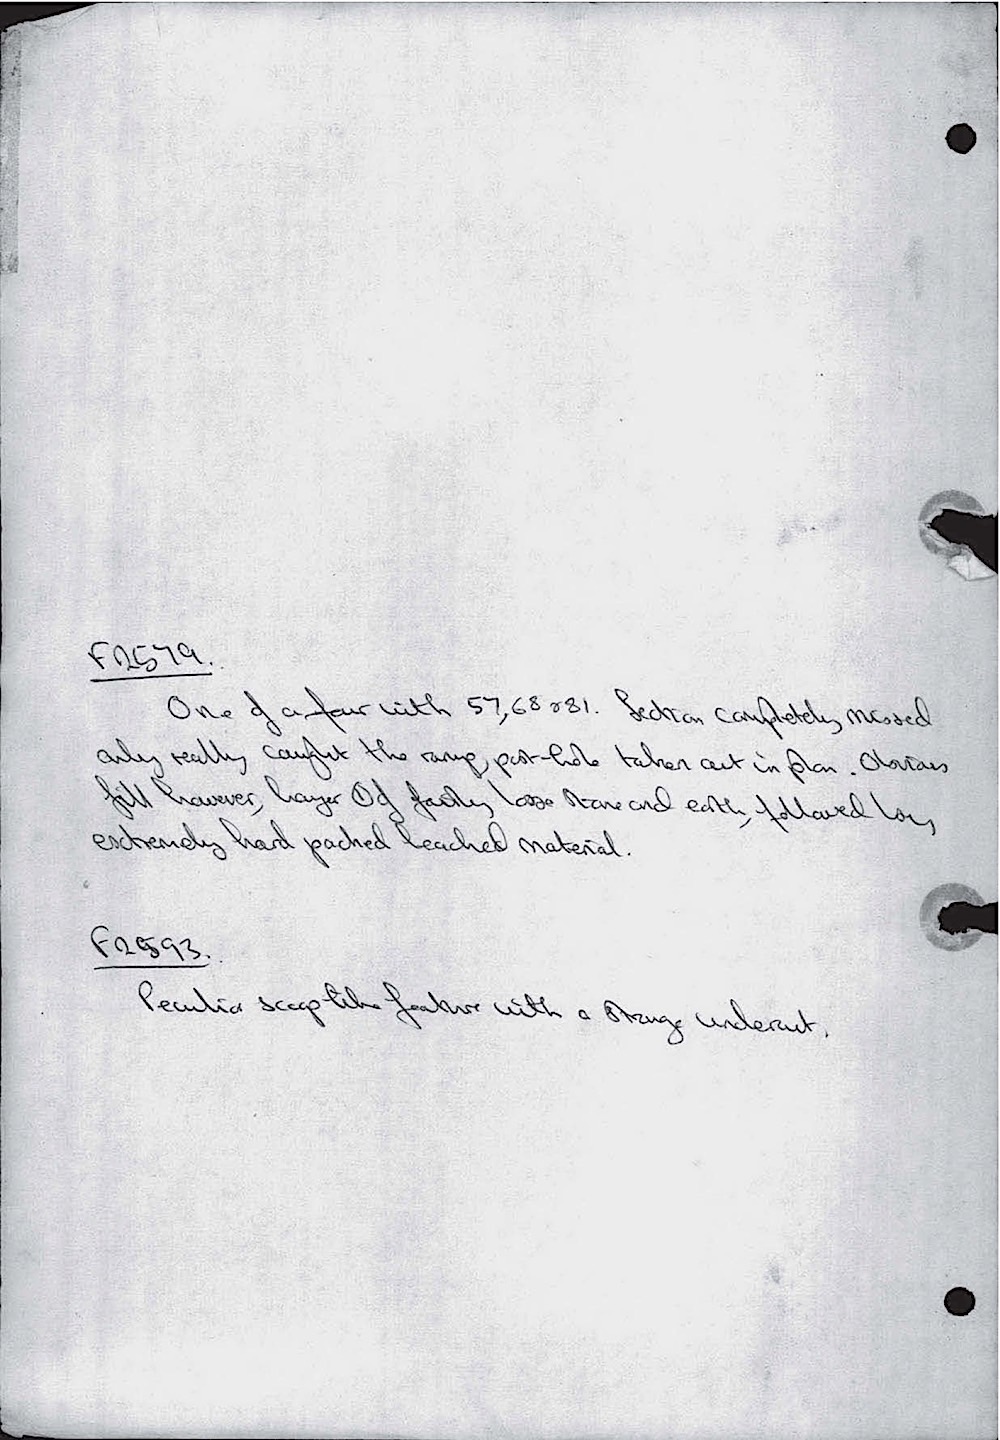 F2579.
One of a four with 57,68 & 81. Section completely missed
only really caught the ramp, post-hole taken out in plan. Obvious
fill however, layer of fairly loose stone and earth, followed by
extremely hard packed leached material.
F2593.
Peculiar scoop-like feature with a strange undercut.